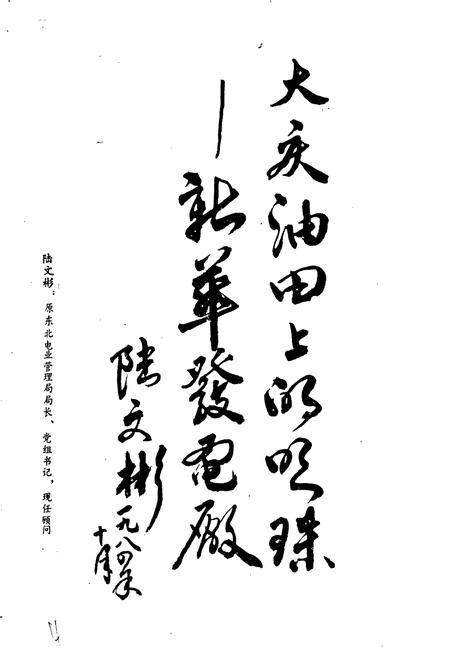 大庆油田上的明珠
—新華發電廠
陆文彬
一九八四年
十月
陆文彬：原东北电业管理局局长、党组书记，现任顾问